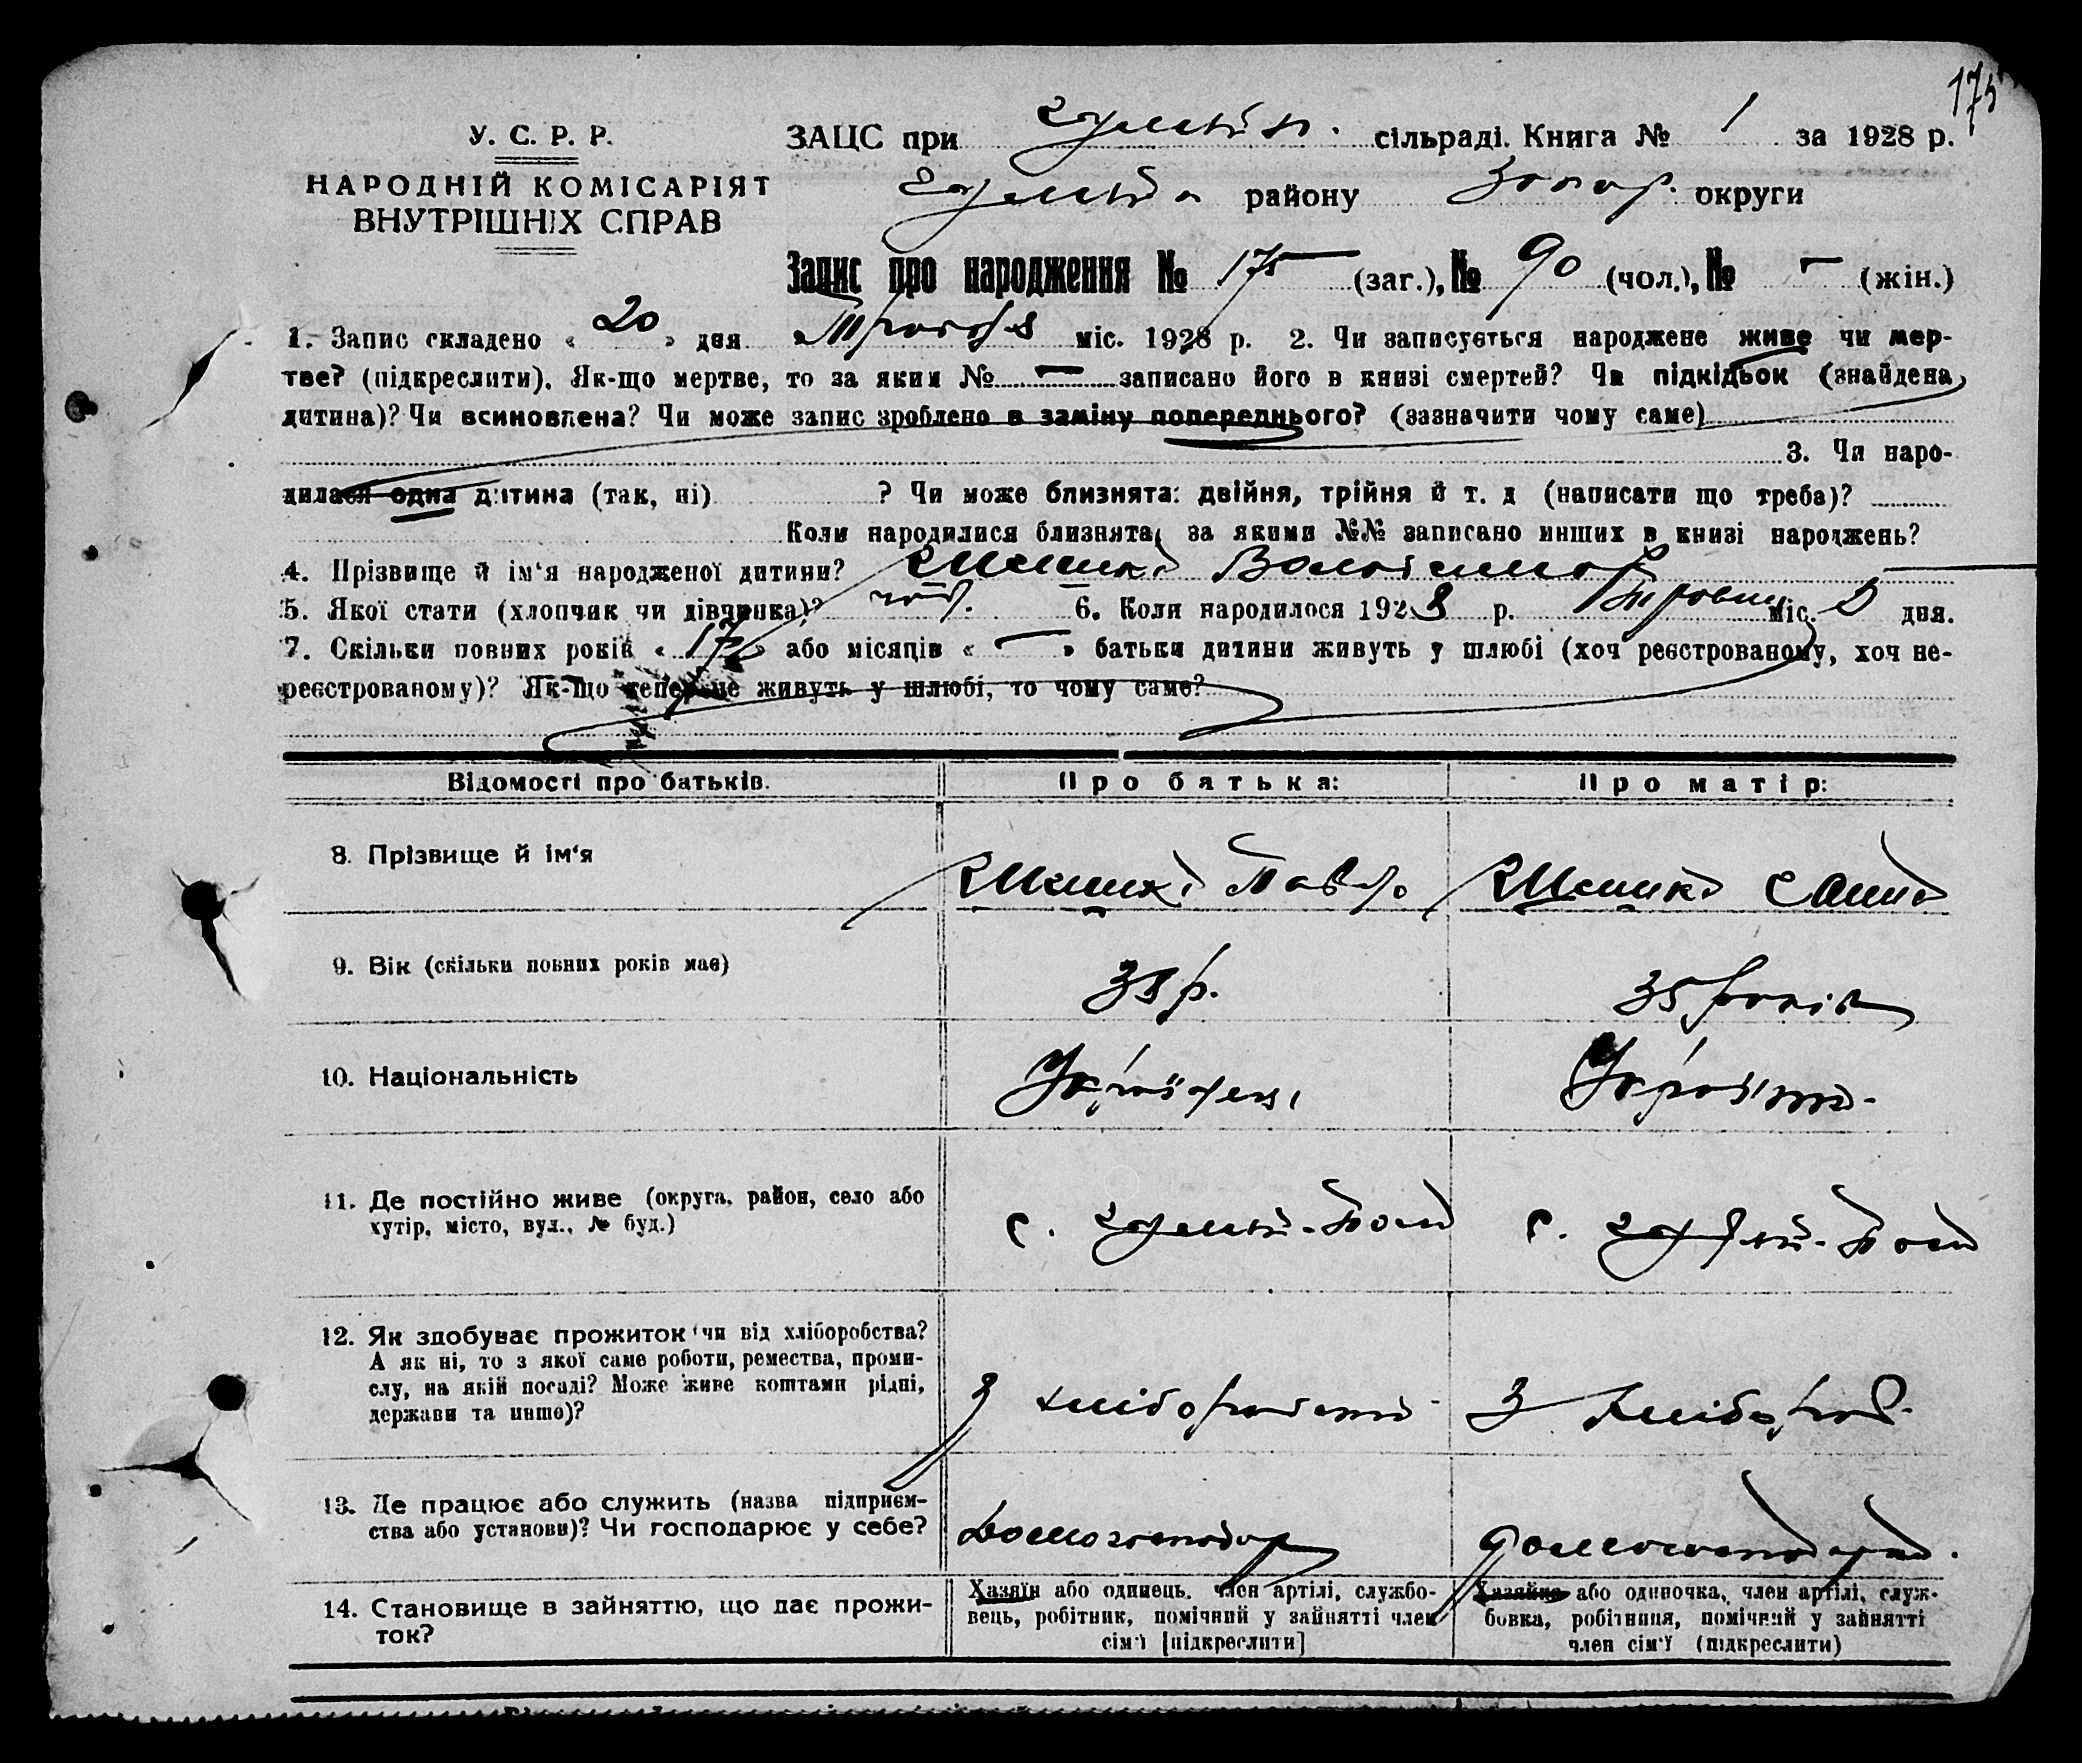 175
У. С. Р. Р.
НАРОДНІЙ КОМІСАРІЯТ
ВНУТРІШНІХ СПРАВ
ЗАЦС при сільраді. Книга № 1 за 1928 р.
району Запор. округи
Запис про народження № 175 (заг.), № 90 (чол.), № — (жін.)
1. Запис складено « 20 » дня міс. 1928 р. 2. Чи записується народжене живе чи мер-
тве? (підкреслити). Як-що мертве, то за яким № — записано його в книзі смертей? Чи підкідьок (знайдена
дитина)? Чи всиновлена? Чи може запис зроблено в заміну попереднього? (зазначити чому саме)
3. Чи наро-
дилася одна дитина (так, ні) ? Чи може близнята: двійня, трійня й т. д (написати що треба)?
Коли народилися близнята, за якими №№ записано инших в книзі народжень?
4. Прізвище й ім'я народженої дитини?
5. Якої стати (хлопчик чи дівчинка)? 6. Коли народилося 1928 р. міс. дня.
7. Скільки повних років « 17 » або місяців « — » батьки дитини живуть у шлюбі (хоч реєстрованому, хоч не-
реєстрованому)? Як-що тепер не живуть у шлюбі, то чому саме?
Відомості про батьків.
Про батька:
Про матір:
8. Прізвище й ім'я
Павло
9. Вік (скільки повних років має)
38 р.
35 років
10. Національність
Українець
Українка
11. Де постійно живе (округа, район, село або
хутір, місто, вул., № буд.)
с. Гуляй-Поле
с. Гуляй-Поле
12. Як здобуває прожиток чи від хліборобства?
А як ні, то з якої саме роботи, ремества, проми-
слу, на якій посаді? Може живе коштами рідні,
держави та иншо)?
З хліборобства
З хлібороб.
13. Де працює або служить (назва підприєм-
ства або установи)? Чи господарює у себе?
Домогосподар
домогосподарка.
14. Становище в зайняттю, що дає прожи-
ток?
Хазяїн або одинець, член артілі, службо-
вець, робітник, помічний у зайнятті член
сім'ї [підкреслити]
Хазяйка або одиночка, член артілі, служ-
бовка, робітниця, помічний у зайнятті
член сім'ї (підкреслити)